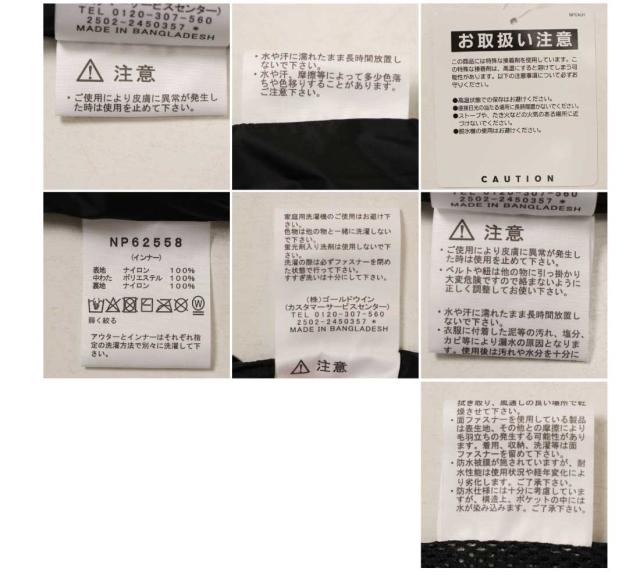 サービスセンター)
TEL 0120-307-560
2502-2450357 *
MADE IN BANGLADESH
注意
・ご使用により皮膚に異常が発生し
た時は使用を止めて下さい。
・水や汗に濡れたまま長時間放置し
ないで下さい。
・水や汗、摩擦等によって多少色落
ちや色移りすることがあります。
ご注意下さい。
お取扱い注意
この商品には特殊な接着剤を使用しています。こ
の特殊な接着剤は、高温にすると溶けてしまう可
能性があります。以下の注意事項について必ずお
守りください。
●高温状態での保存はお避けください。
●直接日光の当たる場所に長時間置かないでください。
●ストーブや、たき火などの火気のある場所に近
づけないでください。
●脱水機の使用はお避けください。
CAUTION
NP62558
(インナー)
表地 ナイロン 100%
中わた ポリエステル 100%
裏地 ナイロン 100%
弱く絞る
アウターとインナーはそれぞれ指
定の洗濯方法で別々に洗濯して下
さい。
家庭用洗濯機のご使用はお避け下
さい。
色物は他の物と一緒に洗濯しない
で下さい。
蛍光剤入り洗剤は使用しないで下
さい。
洗濯の際は必ずファスナーを閉め
た状態で行って下さい。
すすぎ洗いは十分にして下さい。
(株)ゴールドウイン
(カスタマーサービスセンター)
TEL 0120-307-560
2502-2450357 *
MADE IN BANGLADESH
注意
TEL 0120-307-560
2502-2450357 *
MADE IN BANGLADESH
注意
・ご使用により皮膚に異常が発生し
た時は使用を止めて下さい。
・ベルトや紐は他の物に引っ掛かり
大変危険ですので絡まないように
正しく調整してお使い下さい。
・水や汗に濡れたまま長時間放置し
ないで下さい。
・衣服に付着した泥等の汚れ、塩分、
カビ等により漏水の原因となりま
す。使用後は汚れや水分を十分に
拭き取り、風通しの良い場所で乾
燥させて下さい。
・面ファスナーを使用している製品
は表生地、その他との摩擦により
毛羽立ちの発生する可能性があり
ます。着用、収納、洗濯等は面
ファスナーを留めて下さい。
・防水被膜が施されていますが、耐
水性能は使用状況や経年変化によ
り劣化します。ご了承下さい。
・防水仕様には十分に考慮していま
すが、構造上、ポケットの中には
水が染み込みます。ご了承下さい。